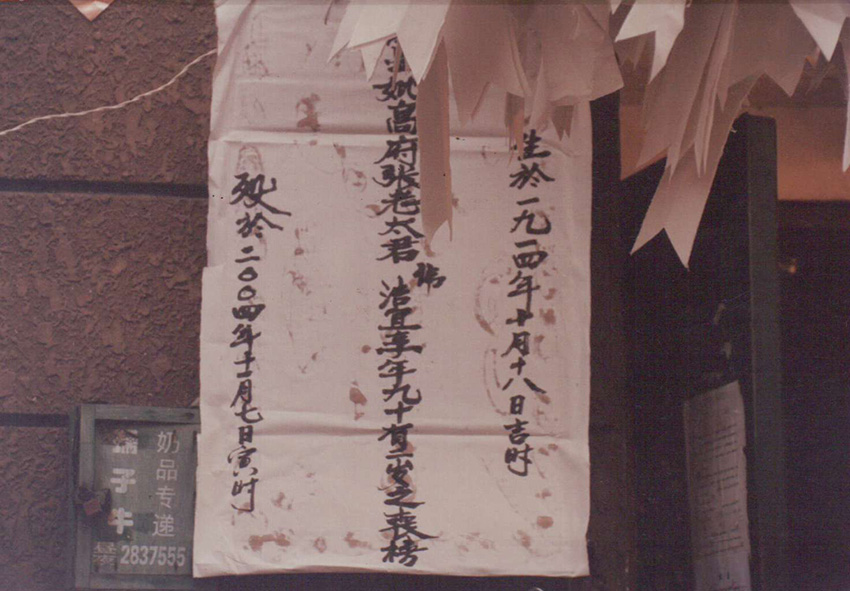 生於一九一四年十月十八日吉时
妣高府张老太君讳洁宜享年九十有二岁之丧榜
殁於二〇〇四年十一月七日寅时
奶品专递
孺子牛
2837555